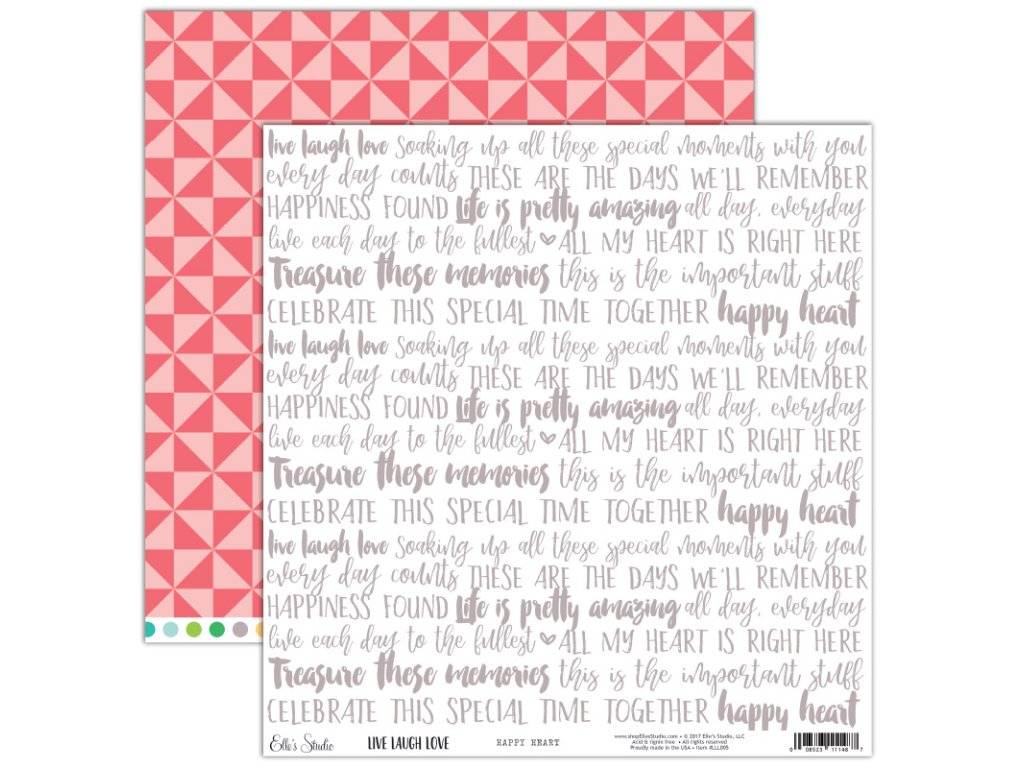 live laugh love Soaking up all these special moments with you
every day counts THESE ARE THE DAYS WE'LL REMEMBER
HAPPINESS FOUND Life is pretty amazing all day, everyday
live each day to the fullest ALL MY HEART IS RIGHT HERE
Treasure these memories this is the important stuff
CELEBRATE THIS SPECIAL TIME TOGETHER happy heart
live laugh love Soaking up all these special moments with you
every day counts THESE ARE THE DAYS WE'LL REMEMBER
HAPPINESS FOUND Life is pretty amazing all day, everyday
live each day to the fullest ALL MY HEART IS RIGHT HERE
Treasure these memories this is the important stuff
CELEBRATE THIS SPECIAL TIME TOGETHER happy heart
live laugh love Soaking up all these special moments with you
every day counts THESE ARE THE DAYS WE'LL REMEMBER
HAPPINESS FOUND Life is pretty amazing all day, everyday
live each day to the fullest ALL MY HEART IS RIGHT HERE
Treasure these memories this is the important stuff
CELEBRATE THIS SPECIAL TIME TOGETHER happy heart
Elle's Studio LIVE LAUGH LOVE HAPPY HEART
www.shopEllesStudio.com • © 2017 Elle's Studio, LLC
Acid & lignin free • All rights reserved
Proudly made in the USA • Item #LLL005
0 08523 11148 7